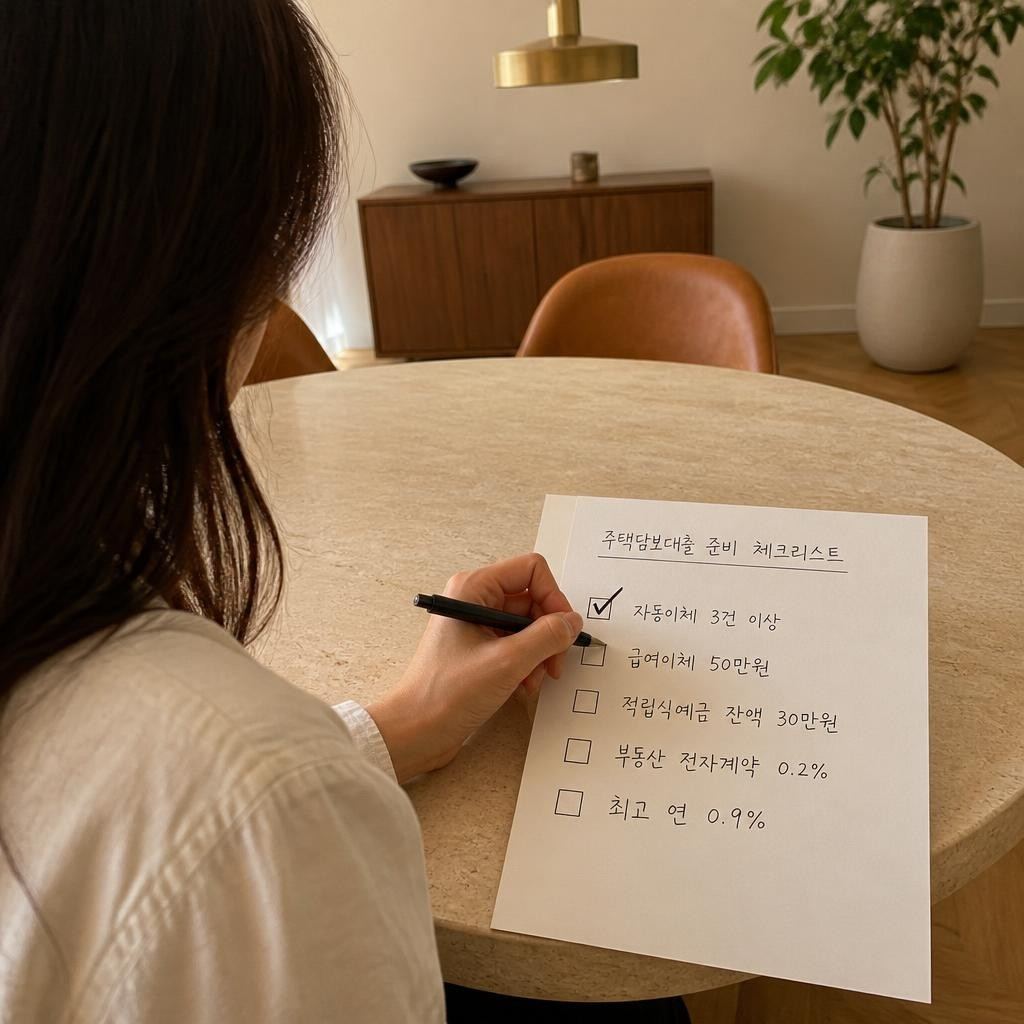 주택담보대출 준비 체크리스트
자동이체 3건 이상
급여이체 50만원
적립식예금 잔액 30만원
부동산 전자계약 0.2%
최고 연 0.9%